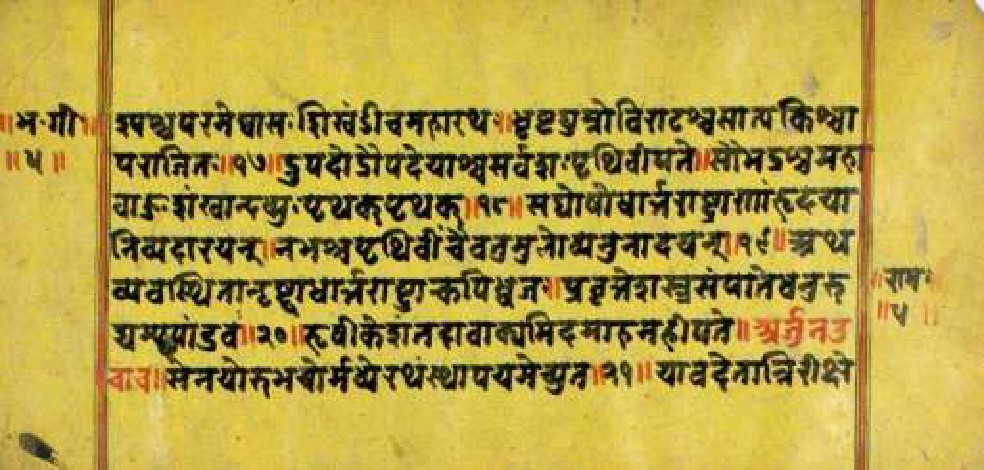 ॥भ॰गी॰॥
॥५॥
श्यश्चपरमेष्वासः शिखंडीचमहारथः॥धृष्टद्युम्नोविराटश्चसात्यकिश्चा
पराजितः॥१७॥द्रुपदोद्रौपदेयाश्चसर्वशःपृथिवीपते॥सौभद्रश्चमहा
बाहुःशंखान्दध्मुःपृथक्पृथक्॥१८॥सघोषोधार्त्तराष्ट्राणांहृदया
निव्यदारयत्॥नभश्चपृथिवींचैवतुमुलोव्यनुनादयन्॥१९॥अथ
व्यवस्थितान्दृष्ट्वाधार्त्तराष्ट्रान्कपिध्वजः॥प्रवृत्तेशस्त्रसंपातेधनुरु
द्यम्यपांडवः॥२०॥हृषीकेशंतदावाक्यमिदमाहमहीपते॥अर्जुनउ
वाच॥सेनयोरुभयोर्मध्येरथंस्थापयमेच्युत॥२१॥यावदेतान्निरीक्षे
॥राम॰
॥५॥